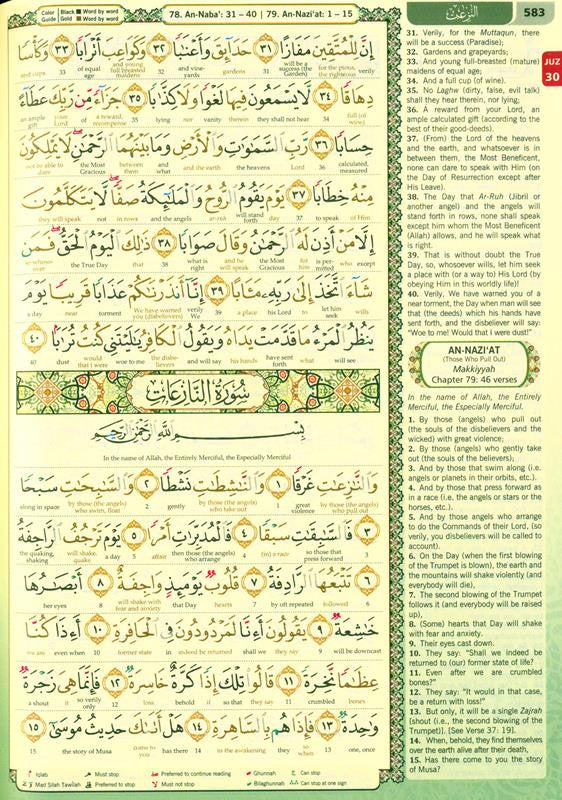 Color | Black ■ Word by word
Guide | Gold ■ Not word by word
78. An-Naba': 31 – 40 | 79. An-Nazi'at: 1 – 15
النّٰزعٰت
583
إِنَّ لِلْمُتَّقِينَ مَفَازًا ٣١ حَدَآئِقَ وَأَعْنَٰبًا ٣٢ وَكَوَاعِبَ أَتْرَابًا ٣٣ وَكَأْسًا
and cups 33 of equal age and young full-breasted maidens 32 and vine-yards gardens 31 will be a success (the Garden) for the pious, the righteous verily
دِهَاقًا ٣٤ لَّا يَسْمَعُونَ فِيهَا لَغْوًا وَلَا كِذَّٰبًا ٣٥ جَزَآءً مِّن رَّبِّكَ عَطَآءً
an ample gift your Lord of a reward, recompense 35 lying nor vanity therein they shall not hear 34 full (of wine)
حِسَابًا ٣٦ رَّبِّ ٱلسَّمَٰوَٰتِ وَٱلْأَرْضِ وَمَا بَيْنَهُمَا ٱلرَّحْمَٰنِ لَا يَمْلِكُونَ
not be able to dare the Most Gracious between them and what and the earth the heavens Lord 36 calculated, measured
مِنْهُ خِطَابًا ٣٧ يَوْمَ يَقُومُ ٱلرُّوحُ وَٱلْمَلَٰٓئِكَةُ صَفًّا لَّا يَتَكَلَّمُونَ
they will speak not in rows and the angels ar-ruh will stand forth day 37 to speak of Him
إِلَّا مَنْ أَذِنَ لَهُ ٱلرَّحْمَٰنُ وَقَالَ صَوَابًا ٣٨ ذَٰلِكَ ٱلْيَوْمُ ٱلْحَقُّ فَمَن
so whosoever the True Day that 38 what is right and he will speak the Most Gracious for him is permitted who except
شَآءَ ٱتَّخَذَ إِلَىٰ رَبِّهِۦ مَـَٔابًا ٣٩ إِنَّآ أَنذَرْنَٰكُمْ عَذَابًا قَرِيبًا يَوْمَ
a day near torment We have warned you (disbelievers) verily We 39 a place his Lord to let him seek wills
يَنظُرُ ٱلْمَرْءُ مَا قَدَّمَتْ يَدَاهُ وَيَقُولُ ٱلْكَافِرُ يَٰلَيْتَنِى كُنتُ تُرَٰبًۢا ٤٠
40 dust would that I were woe to me the disbelievers and will say his hands have sent forth what will see
سُورَةُ النَّازِعَاتِ
بِسْمِ ٱللَّهِ ٱلرَّحْمَٰنِ ٱلرَّحِيمِ
In the name of Allah, the Entirely Merciful, the Especially Merciful
وَٱلنَّٰزِعَٰتِ غَرْقًا ١ وَٱلنَّٰشِطَٰتِ نَشْطًا ٢ وَٱلسَّٰبِحَٰتِ سَبْحًا
along in space by those (the angels) who swim, float 2 gently by those (the angels) who take out 1 great violence by those (the angels) who pull out
٣ فَٱلسَّٰبِقَٰتِ سَبْقًا ٤ فَٱلْمُدَبِّرَٰتِ أَمْرًا ٥ يَوْمَ تَرْجُفُ ٱلرَّاجِفَةُ
the quaking, shaking will shake, quake a day 5 affair then those (the angels) who arrange 4 (in) a race so those that press forward 3
٦ تَتْبَعُهَا ٱلرَّادِفَةُ ٧ قُلُوبٌ يَوْمَئِذٍ وَاجِفَةٌ ٨ أَبْصَٰرُهَا
her eyes 8 will shake with fear and anxiety that Day hearts 7 by oft repeated followed 6
خَٰشِعَةٌ ٩ يَقُولُونَ أَءِنَّا لَمَرْدُودُونَ فِى ٱلْحَافِرَةِ ١٠ أَءِذَا كُنَّا
we are even when 10 former state in indeed be returned shall we they say 9 will be downcast
عِظَٰمًا نَّخِرَةً ١١ قَالُوا۟ تِلْكَ إِذًا كَرَّةٌ خَاسِرَةٌ ١٢ فَإِنَّمَا هِىَ زَجْرَةٌ
a shout it so verily only 12 loss behold if so that they say 11 crumbled bones
وَٰحِدَةٌ ١٣ فَإِذَا هُم بِٱلسَّاهِرَةِ ١٤ هَلْ أَتَىٰكَ حَدِيثُ مُوسَىٰٓ ١٥
15 the story of Musa come to you has there 14 in the awakening they so when 13 one, once
Iqlab Must stop Preferred to continue reading Ghunnah Can stop
Mad Silah Tawilah Preferred to stop Must not stop Bilaghunnah Can stop at one sign
31. Verily, for the Muttaqun, there
will be a success (Paradise);
32. Gardens and grapeyards;
33. And young full-breasted (mature)
maidens of equal age;
34. And a full cup (of wine).
35. No Laghw (dirty, false, evil talk)
shall they hear therein, nor lying;
36. A reward from your Lord, an
ample calculated gift (according to the
best of their good-deeds).
37. (From) the Lord of the heavens
and the earth, and whatsoever is in
between them, the Most Beneficent,
none can dare to speak with Him (on
the Day of Resurrection except after
His Leave).
38. The Day that Ar-Ruh (Jibril or
another angel) and the angels will
stand forth in rows, none shall speak
except him whom the Most Beneficent
(Allah) allows, and he will speak what
is right.
39. That is without doubt the True
Day, so, whosoever wills, let him seek
a place with (or a way to) His Lord (by
obeying Him in this worldly life)!
40. Verily, We have warned you of a
near torment, the Day when man will see
that (the deeds) which his hands have
sent forth, and the disbeliever will say:
"Woe to me! Would that I were dust!"
JUZ
30
AN-NAZI'AT
(Those Who Pull Out)
Makkiyyah
Chapter 79: 46 verses
In the name of Allah, the Entirely
Merciful, the Especially Merciful.
1. By those (angels) who pull out
(the souls of the disbelievers and the
wicked) with great violence;
2. By those (angels) who gently take
out (the souls of the believers);
3. And by those that swim along (i.e.
angels or planets in their orbits, etc.).
4. And by those that press forward as
in a race (i.e. the angels or stars or the
horses, etc.).
5. And by those angels who arrange
to do the Commands of their Lord, (so
verily, you disbelievers will be called to
account).
6. On the Day (when the first blowing
of the Trumpet is blown), the earth and
the mountains will shake violently (and
everybody will die),
7. The second blowing of the Trumpet
follows it (and everybody will be raised
up),
8. (Some) hearts that Day will shake
with fear and anxiety.
9. Their eyes cast down.
10. They say: "Shall we indeed be
returned to (our) former state of life?
11. Even after we are crumbled
bones?"
12. They say: "It would in that case,
be a return with loss!"
13. But only, it will be a single Zajrah
[shout (i.e., the second blowing of the
Trumpet)]. [See Verse 37: 19].
14. When, behold, they find themselves
over the earth alive after their death,
15. Has there come to you the story
of Musa?